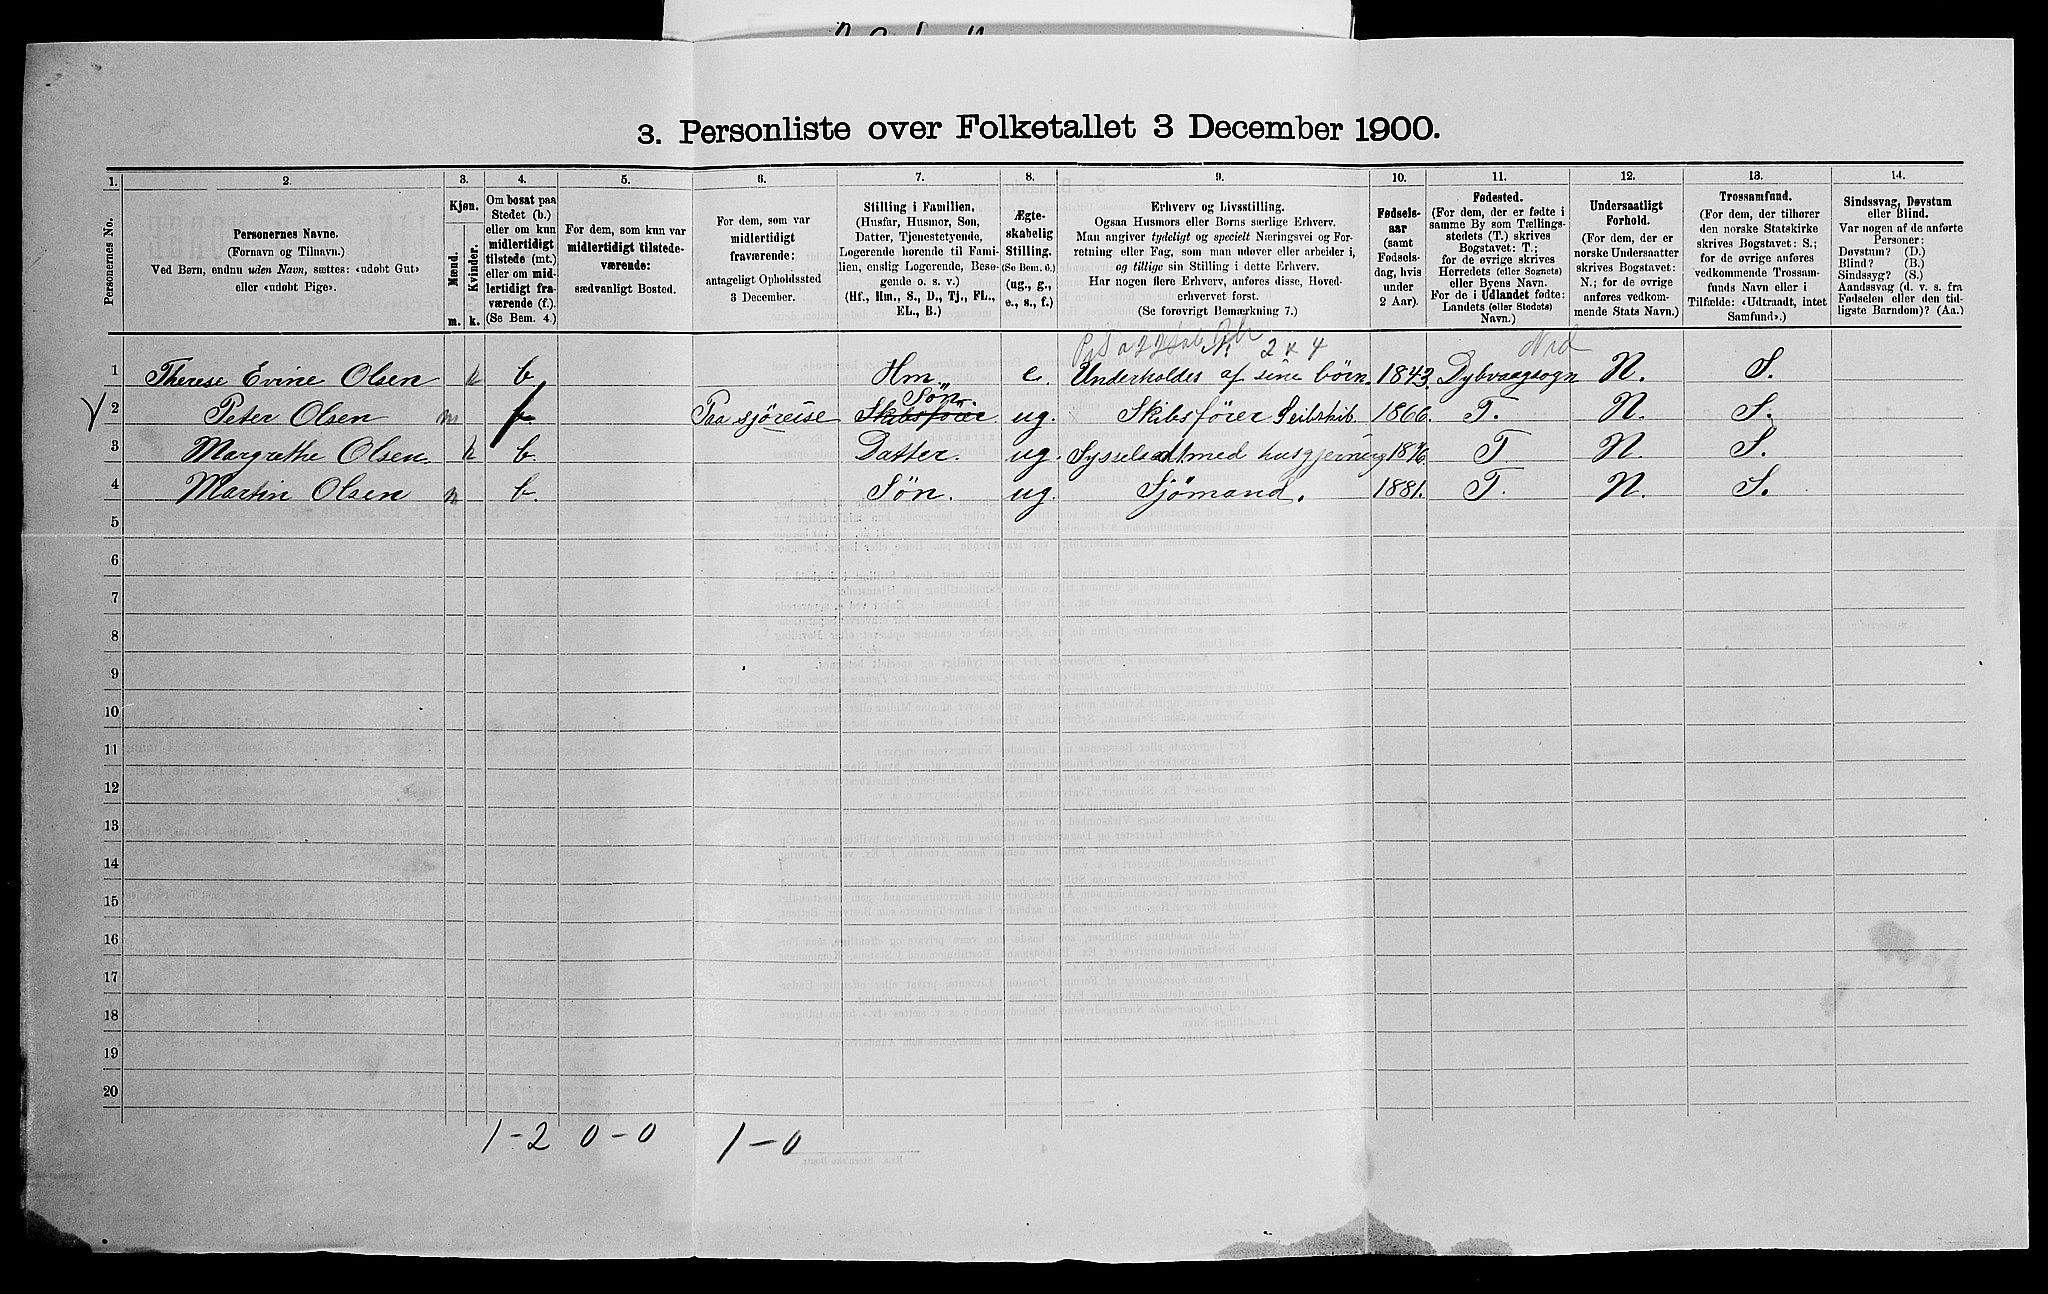 3. Personliste over Folketallet 3 December 1900.
1. 2. 3. 4. 5. 6. 7. 8. 9. 10. 11. 12. 13. 14.
Personernes No.
Personernes Navne.
(Fornavn og Tilnavn.)
Ved Børn, endnu uden Navn, sættes: «udøbt Gut»
eller «udøbt Pige».
Kjøn.
Mænd.
Kvinder.
m. k.
Om bosat paa
Stedet (b.)
eller om kun
midlertidigt
tilstede (mt.)
eller om mid-
lertidigt fra-
værende (f.).
(Se Bem. 4.)
For dem, som kun var
midlertidigt tilstede-
værende:
sædvanligt Bosted.
For dem, som var
midlertidigt
fraværende:
antageligt Opholdssted
3 December.
Stilling i Familien.
(Husfar, Husmor, Søn,
Datter, Tjenestetyende,
Logerende hørende til Fami-
lien, enslig Logerende, Besø-
gende o. s. v.)
(Hf., Hm., S., D., Tj., FL.,
EL., B.)
Ægte-
skabelig
Stilling.
(Se Bem. 6.)
(ug., g.,
e., s., f.)
Erhverv og Livsstilling.
Ogsaa Husmors eller Børns særlige Erhverv.
Man angiver tydeligt og specielt Næringsvei og For-
retning eller Fag, som man udøver eller arbeider i,
og tillige sin Stilling i dette Erhverv.
Har nogen flere Erhverv, anføres disse, Hoved-
erhvervet først.
(Se forøvrigt Bemærkning 7.)
Fødsels-
aar
(samt
Fødsels-
dag, hvis
under
2 Aar).
Fødested.
(For dem, der er fødte i
samme By som Tællings-
stedets (T.) skrives
Bogstavet: T.;
for de øvrige skrives
Herredets (eller Sognets)
eller Byens Navn.
For de i Udlandet fødte:
Landets (eller Stedets)
Navn.)
Undersaatligt
Forhold.
(For dem, der er
norske Undersaatter
skrives Bogstavet:
N.; for de øvrige
anføres vedkom-
mende Stats Navn.)
Trossamfund.
(For dem, der tilhører
den norske Statskirke
skrives Bogstavet: S.;
for de øvrige anføres
vedkommende Trossam-
funds Navn eller i
Tilfælde: «Udtraadt, intet
Samfund».)
Sindssvag, Døvstum
eller Blind.
Var nogen af de anførte
Personer:
Døvstum? (D.)
Blind? (B.)
Sindssyg? (S.)
Aandssvag (d. v. s. fra
Fødselen eller den tid-
ligste Barndom)? (Aa.)
2 x 4
1 Therese Evine Olsen k b. Hm. e. Underholdes af sine börn. 1843. Dybvaagsogn N. S.
Søn.
2 Peter Olsen m f. Paa sjöreise Skibsfører ug. Skibsförer Seilskib. 1866. T. N. S.
3 Margrethe Olsen. k b. Datter. ug. Sysselsat med husgjerning 1876. T N. S.
4 Martin Olsen m b. Søn. ug. Sjömand. 1881. T. N. S.
5
6
7
8
9
10
11
12
13
14
15
16
17
18
19
20
1-2 0-0 1-0